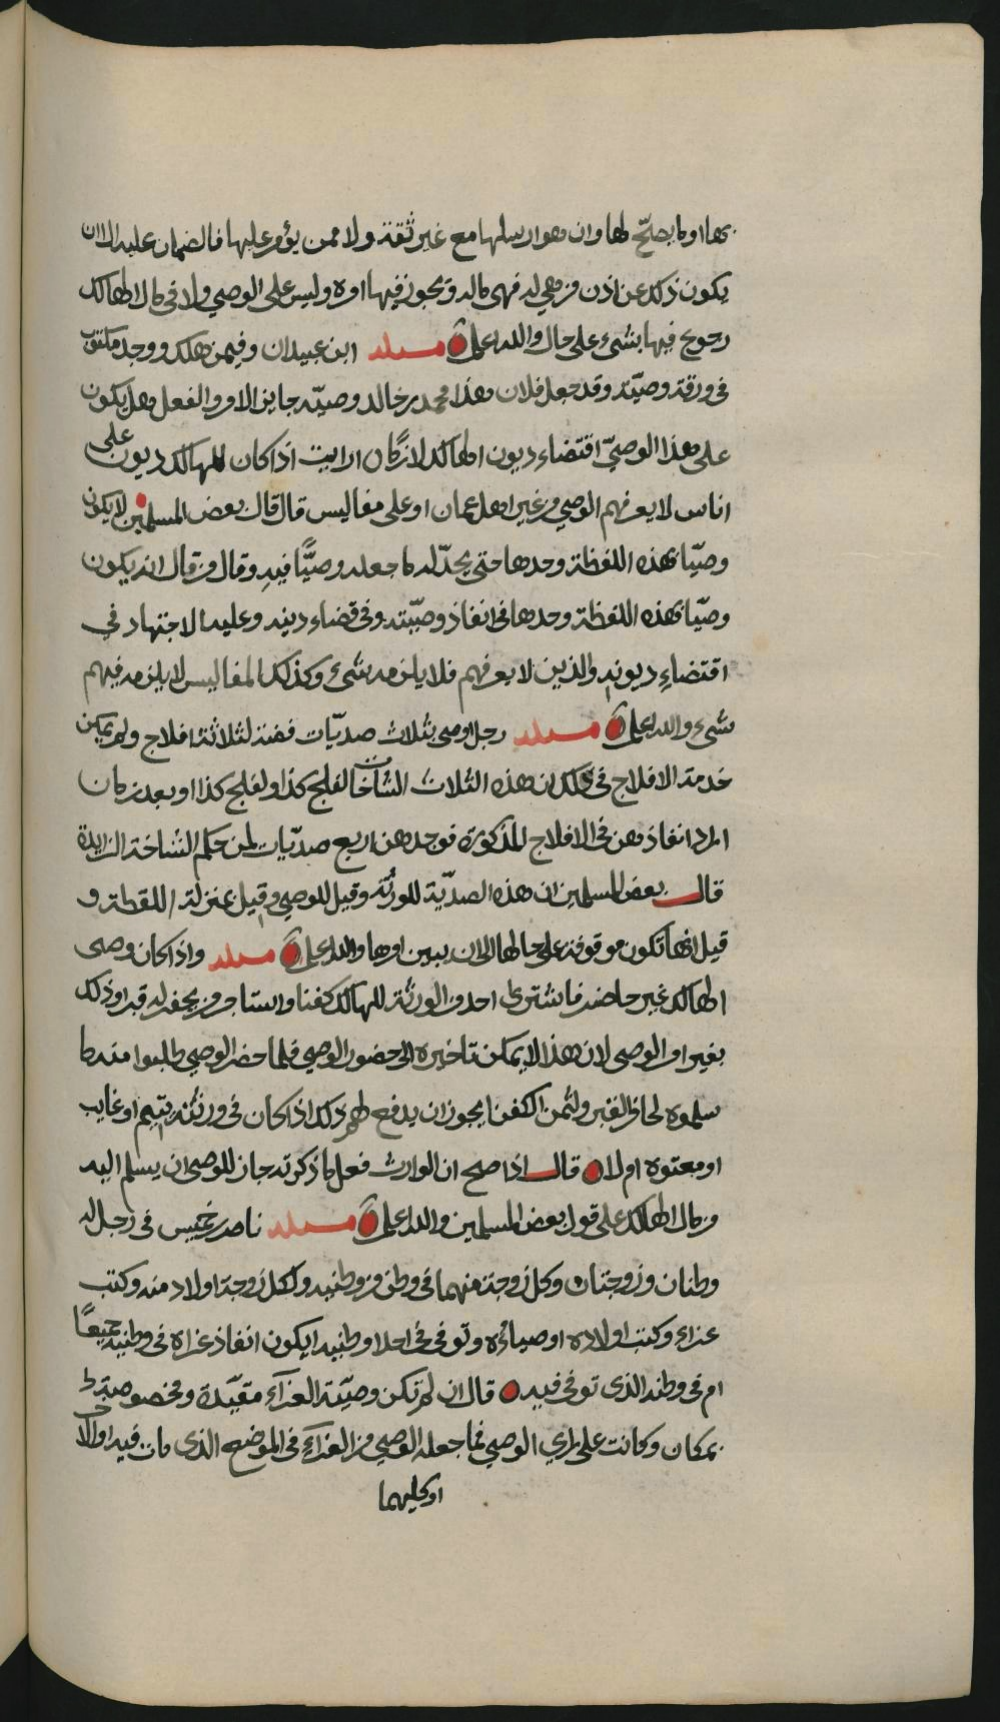 بها او ما يصلح لها وان هو ارسلها مع غير ثقة ولا ممن يؤمر عليها فالضمان عليه الا ان
يكون ذلك عن اذن من هي له فهي ماله ويجوز فيها امره وليس على الوصي ولا في مال الهالك
رجوع فيها بشيء على حال والله اعلم مسئلة ابن عبيدان وفيمن هلك ووجد مكتوب
في ورقة وصيّته وقد جعل فلان هذا محمد بن خالد وصيّه جايز الامر والفعل هل يكون
على هذا الوصيّ اقتضاء ديون الهالك لازما ارايت اذا كان للهالك ديون على
اناس لا يعرفهم الوصي من غير اهل عمان او على مفاليس قال قال بعض المسلمين لا يكون
وصيّا بهذه اللفظة وحدها حتى يحدّ له ما جعله وصيًّا فيه وقال من قال انه يكون
وصيّا بهذه اللفظة وحدها في انفاذ وصيّته وفي قضاء دينه وعليه الاجتهاد في
اقتضاء ديونه والذين لا يعرفهم فلا يلزمه شيء وكذلك المفاليس لا يلزمه فيهم
شيء والله اعلم مسئلة رجل اوصى بثلاث صديّات فضة لثلاثة افلاج ولم يمكن
خدمة الافلاج في ذلك ان هذه الثلاث الشاخات لفلج كذا ولفلج كذا او بعد زمان
اراد انفاذهن في الافلاج المذكورة فوجدهن اربع صديّات لمن حكم الشاخة الزايدة
قال بعض المسلمين ان هذه الصديّة للورثة وقيل للوصي وقيل بمنزلة اللقطة و
قيل انها تكون موقوفة على حالها الى ان يبين امرها والله اعلم مسئلة واذا كان وصي
الهالك غير حاضر فاشترى احد من الورثة للهالك كفنا واستاجر من يحفر له قبرا وذلك
بغير امر الوصي لان هذا لا يمكن تاخيره الى حضور الوصي فلما حضر الوصي طلبوا منه ما
سلموه لحافر القبر ولثمن الكفن ايجوز ان يدفع لهم ذلك اذا كان في ورثته يتيم او غايب
او معتوه ام لا قال اذا صح ان الوارث فعل ما ذكرته جاز للوصي ان يسلم اليه
من مال الهالك على قول بعض المسلمين والله اعلم مسئلة ناصر بن خميس في رجل له
وطنان وزوجتان وكل زوجة منهما في وطن من وطنيه ولكل زوجة اولاد منه وكتب
عزاء وكتب اولاده اوصيائه وتوفي في احد اوطنيه ايكون انفاذ عزاه في وطنيه جميعًا
ام في وطنه الذي توفي فيه قال ان لم تكن وصيّة العزاء مقيّدة ومخصوصة
بمكان وكانت على راي الوصي فما جعله الوصي من العزاء في الموضع الذي مات فيه او الآخر
او كليهما